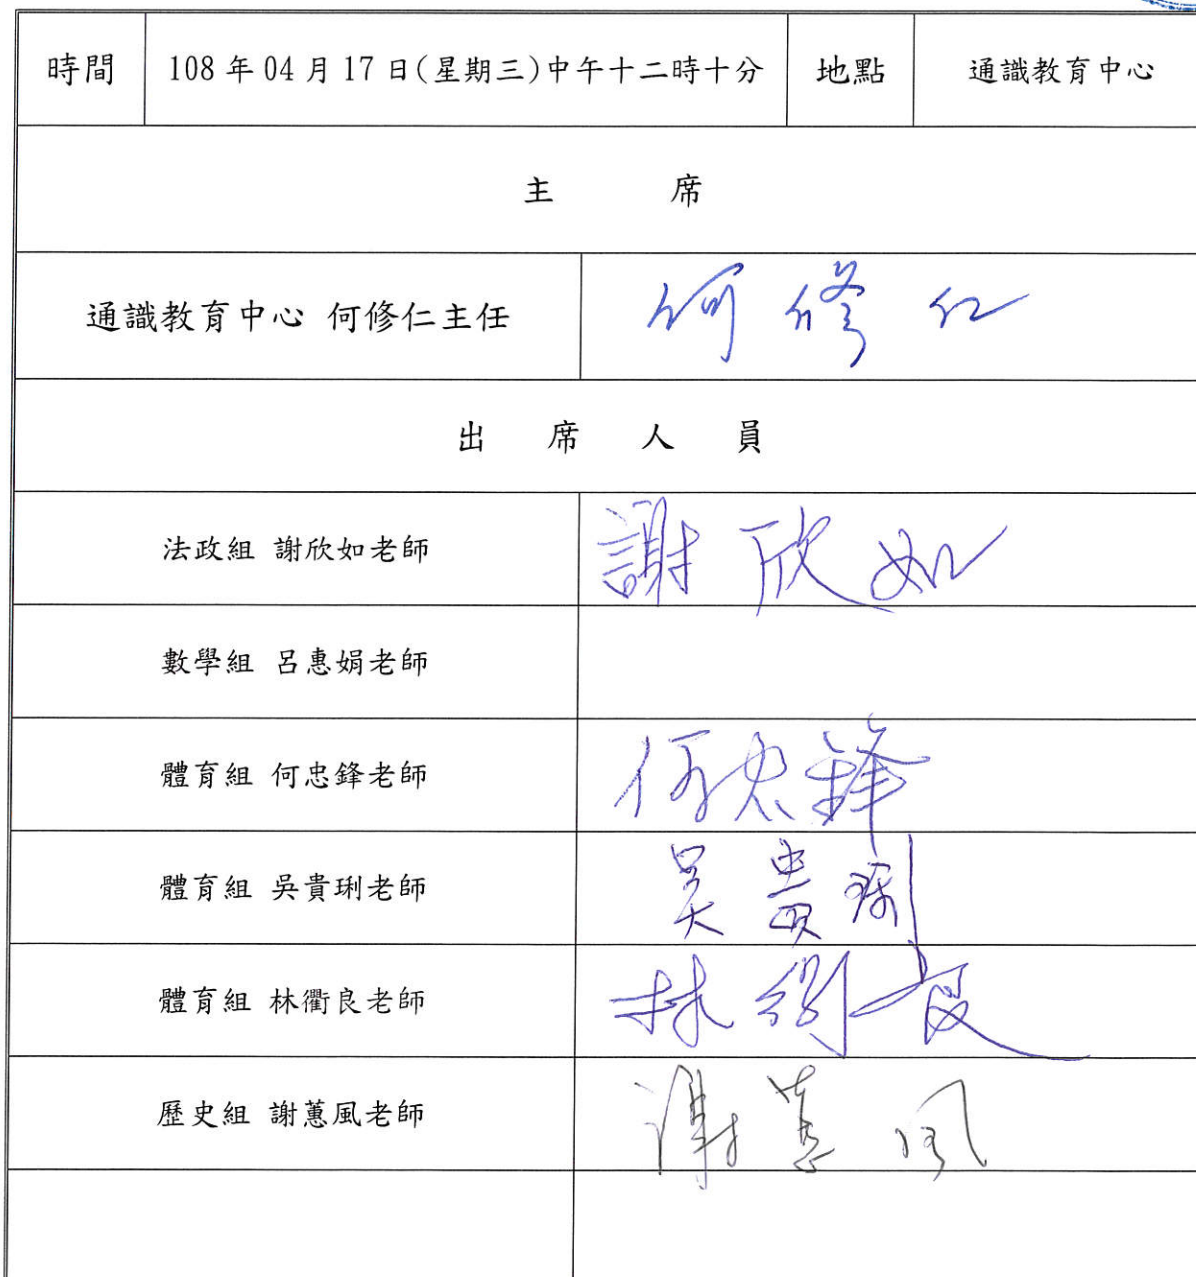 時間 108年04月17日(星期三)中午十二時十分 地點 通識教育中心
主 席
通識教育中心 何修仁主任 何修仁
出 席 人 員
法政組 謝欣如老師 謝欣如
數學組 呂惠娟老師
體育組 何忠鋒老師 何忠鋒
體育組 吳貴琍老師 吳貴琍
體育組 林衢良老師 林衢良
歷史組 謝蕙風老師 謝蕙風